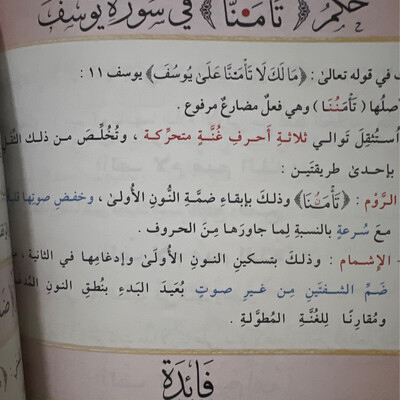 حكم ﴿تَأْمَ۫نَّا﴾ في سورة يوسف
في قوله تعالى : ﴿مَا لَكَ لَا تَأْمَ۫نَّا عَلَىٰ يُوسُفَ﴾ يوسف ١١ :
أصلُها ( تَأْمَنُنَا ) وهي فعلٌ مضارعٌ مرفوع .
اُستُثقِلَ تَوالـي ثلاثةِ أَحرفِ غُنَّةٍ متحرِّكة ، وتُخُلِّصَ مـن ذلـك
بإحدى طريقتَين :
الرَّوْم : ﴿تَأْمَنُنَا﴾ وذلكَ بإبقاءِ ضمَّةِ النُّونِ الأُولىٰ ، وخفضِ صوتِها
معَ سُرعةٍ بالنسبةِ لِما جاورَها مِنَ الحروف .
- الإشمام : وذلك بتسكينِ النـونِ الأُولَىٰ وإدغامِها في الثانية ،
ضَمِّ الشَّفتَينِ مِـن غيـرِ صـوتٍ بُعَيدَ البَدءِ بنُطقِ النونِ
ومُقارِنًا لِلغُنَّةِ المُطوَّلةِ .
فَائِدَة